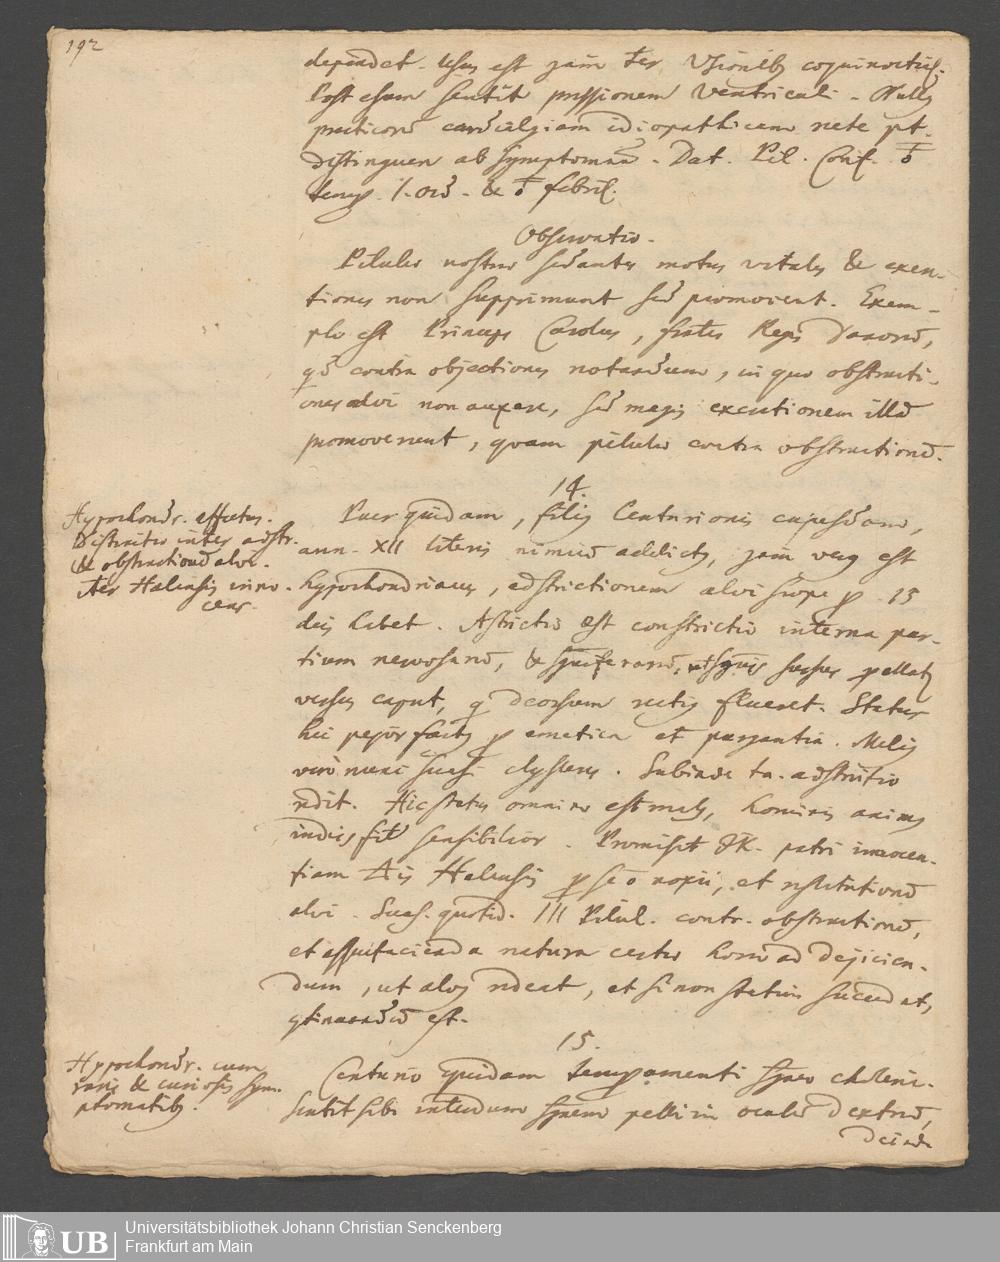 192
dependet. Usus est jam ter Visionibus coquinoctial.
Post esum sentit pressionem Ventriculi. Nullus
practicorum cardialgiam idiopathicam rete pt.
distinguere ab symptomat. Dat. Pil. Conf.
temp. & febril.
Observatio.
Pilulae nostrae sedantes motus vitales & excre-
tiones non supprimunt sed promovent. Exem-
plo est Princeps Carolus, frater Regis Danorum,
qd contra objectiones notandum, in quo obstructi-
ones alvi non auxere, sed magis excretionem illam
promoverunt, quam pilulae contra obstructionem.
14.
Hypochondr. affectus.
Distinctio inter adstr.
& obstructionem alvi.
Aer Halensis inno-
cens.
Puer quidam, filius Centurionis cujusdam,
ann. XII literis nimium addictus, jam vero est
hypochondriacus, adstrictionem alvi saepe p 15
dies habet. Astrictio est constrictio interna par-
tium nervosarum, & sanguiferarum, ut sanguis sursus pellatur
versus caput, q deorsum rectius flueret. Status
hic pejor factus p emetica et purgantia. Melius
vero nunc suasi clysteres. Subinde ta. adstrictio
redit. Hic status omnino est malus, hominis animus
indies fit sensibilior. Promisit patri innocen-
tiam Aeris Halensis p se o noxii, et restitutionem
alvi. Suas. quotid. III Pilul. contr. obstructionem,
et assuefacienda natura certo horae ad dejicien-
dum, ut alvus redeat, et si non statim succedat,
continuandum est.
15.
Hypochondr. cum
variis & curiosis sym-
ptomatibus.
Centurio quidam temperamenti sangvineo choleric.
Sentit sibi interdum sangvinem pelli in oculum dextrum,
deinde
Universitätsbibliothek Johann Christian Senckenberg
Frankfurt am Main
UB